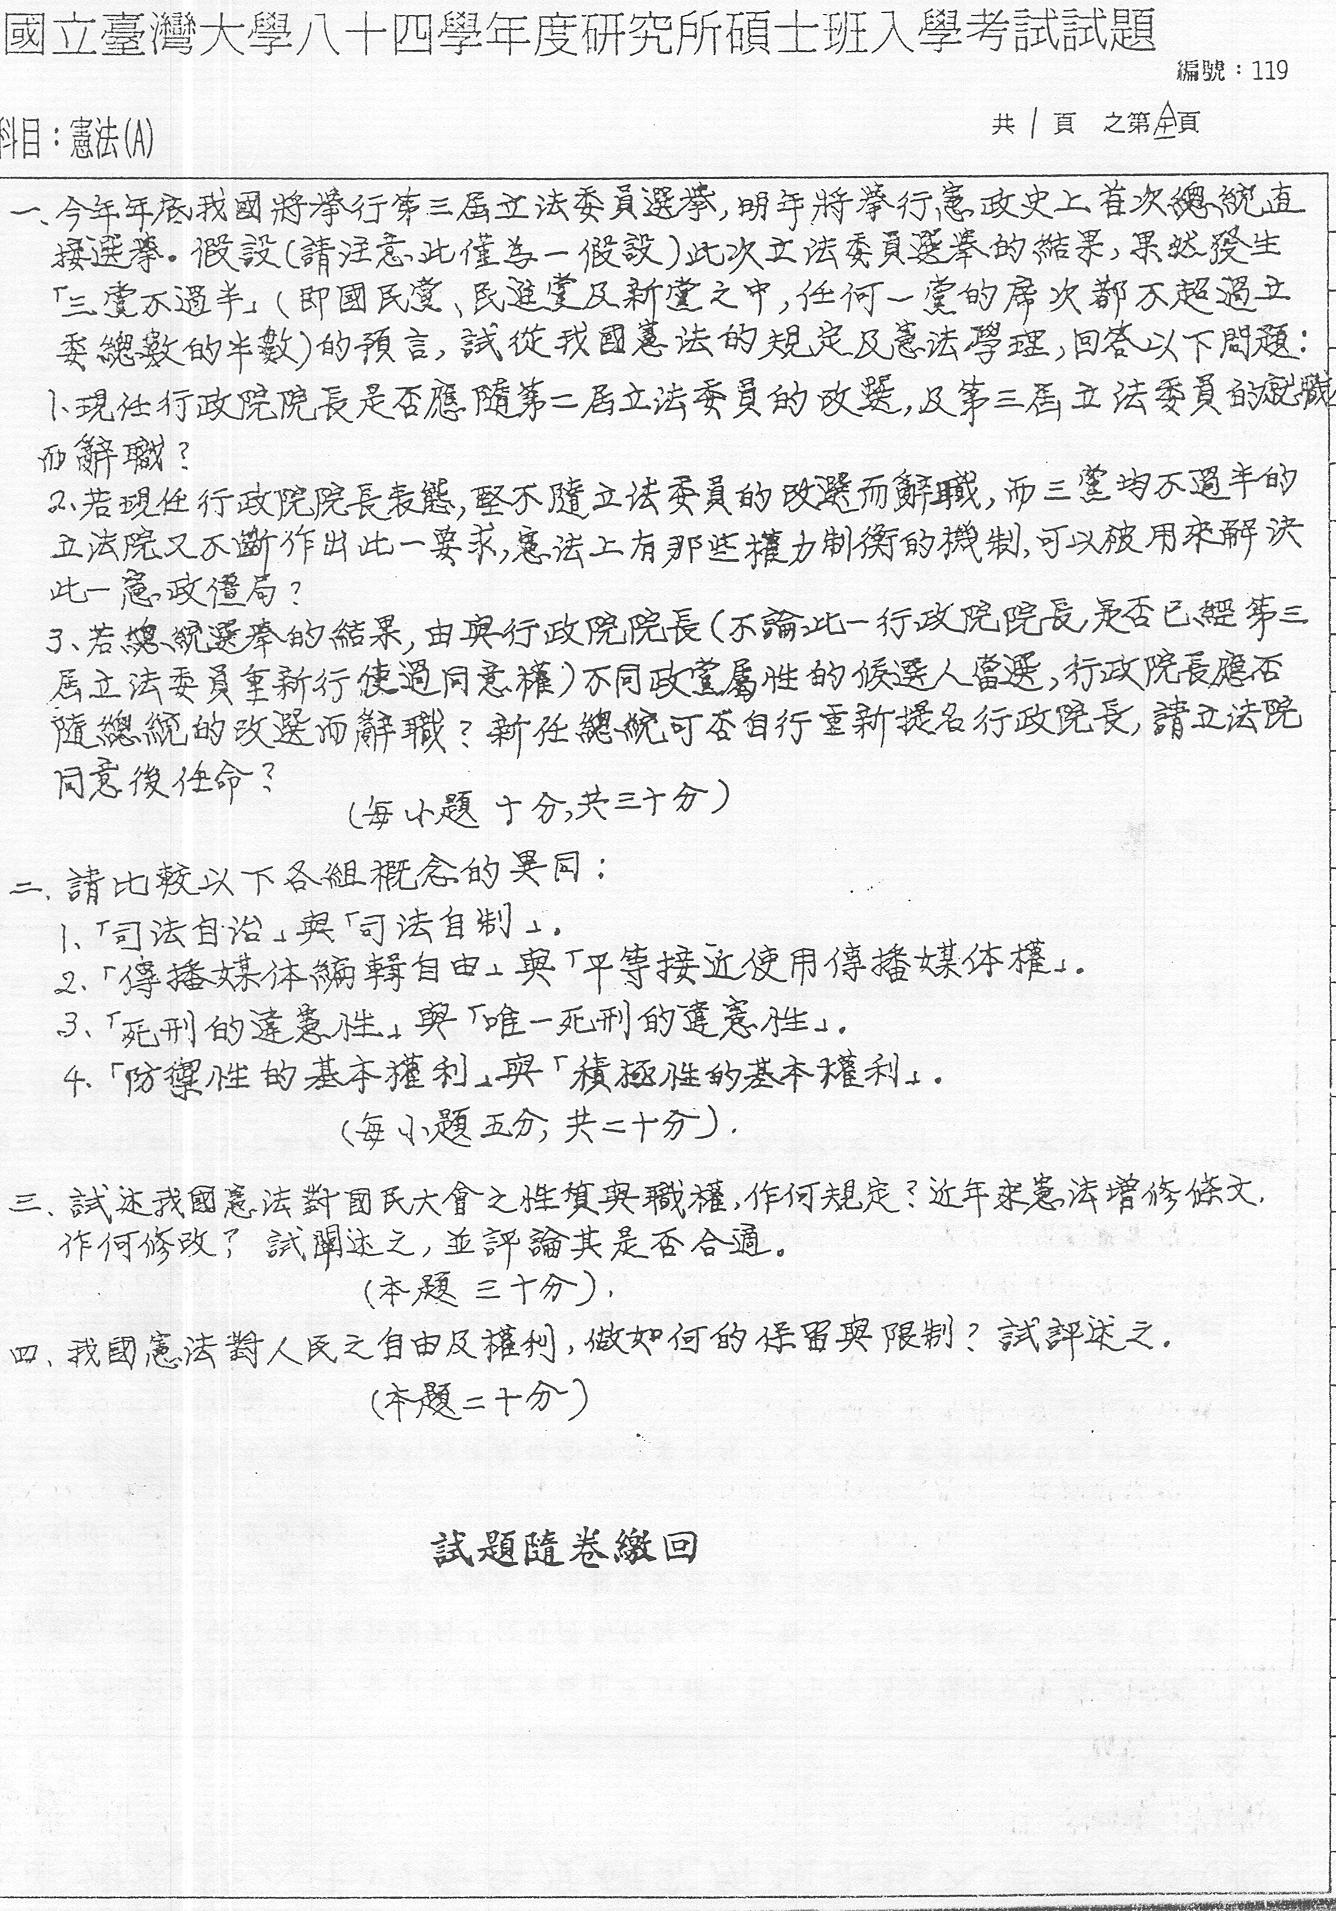 國立臺灣大學八十四學年度研究所碩士班入學考試試題
編號：119
科目：憲法(A)
共 1 頁 之第全頁
一、今年年底我國將舉行第三屆立法委員選舉，明年將舉行憲政史上首次總統直
接選舉。假設(請注意此僅為一假設)此次立法委員選舉的結果，果然發生
「三黨不過半」(即國民黨、民進黨及新黨之中，任何一黨的席次都不超過立
委總數的半數)的預言，試從我國憲法的規定及憲法學理，回答以下問題：
1、現任行政院院長是否應隨第二屆立法委員的改選，及第三屆立法委員的就職
而辭職？
2、若現任行政院院長表態，堅不隨立法委員的改選而辭職，而三黨均不過半的
立法院又不斷作出此一要求，憲法上有那些權力制衡的機制，可以被用來解決
此一憲政僵局？
3、若總統選舉的結果，由與行政院院長(不論此一行政院院長是否已經第三
屆立法委員重新行使過同意權)不同政黨屬性的候選人當選，行政院長應否
隨總統的改選而辭職？新任總統可否自行重新提名行政院長，請立法院
同意後任命？
(每小題 十分，共三十分)
二、請比較以下各組概念的異同：
1、「司法自治」與「司法自制」。
2、「傳播媒体編輯自由」與「平等接近使用傳播媒体權」。
3、「死刑的違憲性」與「唯一死刑的違憲性」。
4、「防禦性的基本權利」與「積極性的基本權利」。
(每小題五分，共二十分)．
三、試述我國憲法對國民大會之性質與職權，作何規定？近年來憲法增修條文，
作何修改？試闡述之，並評論其是否合適。
(本題 三十分)．
四、我國憲法對人民之自由及權利，做如何的保留與限制？試評述之．
(本題二十分)
試題隨卷繳回